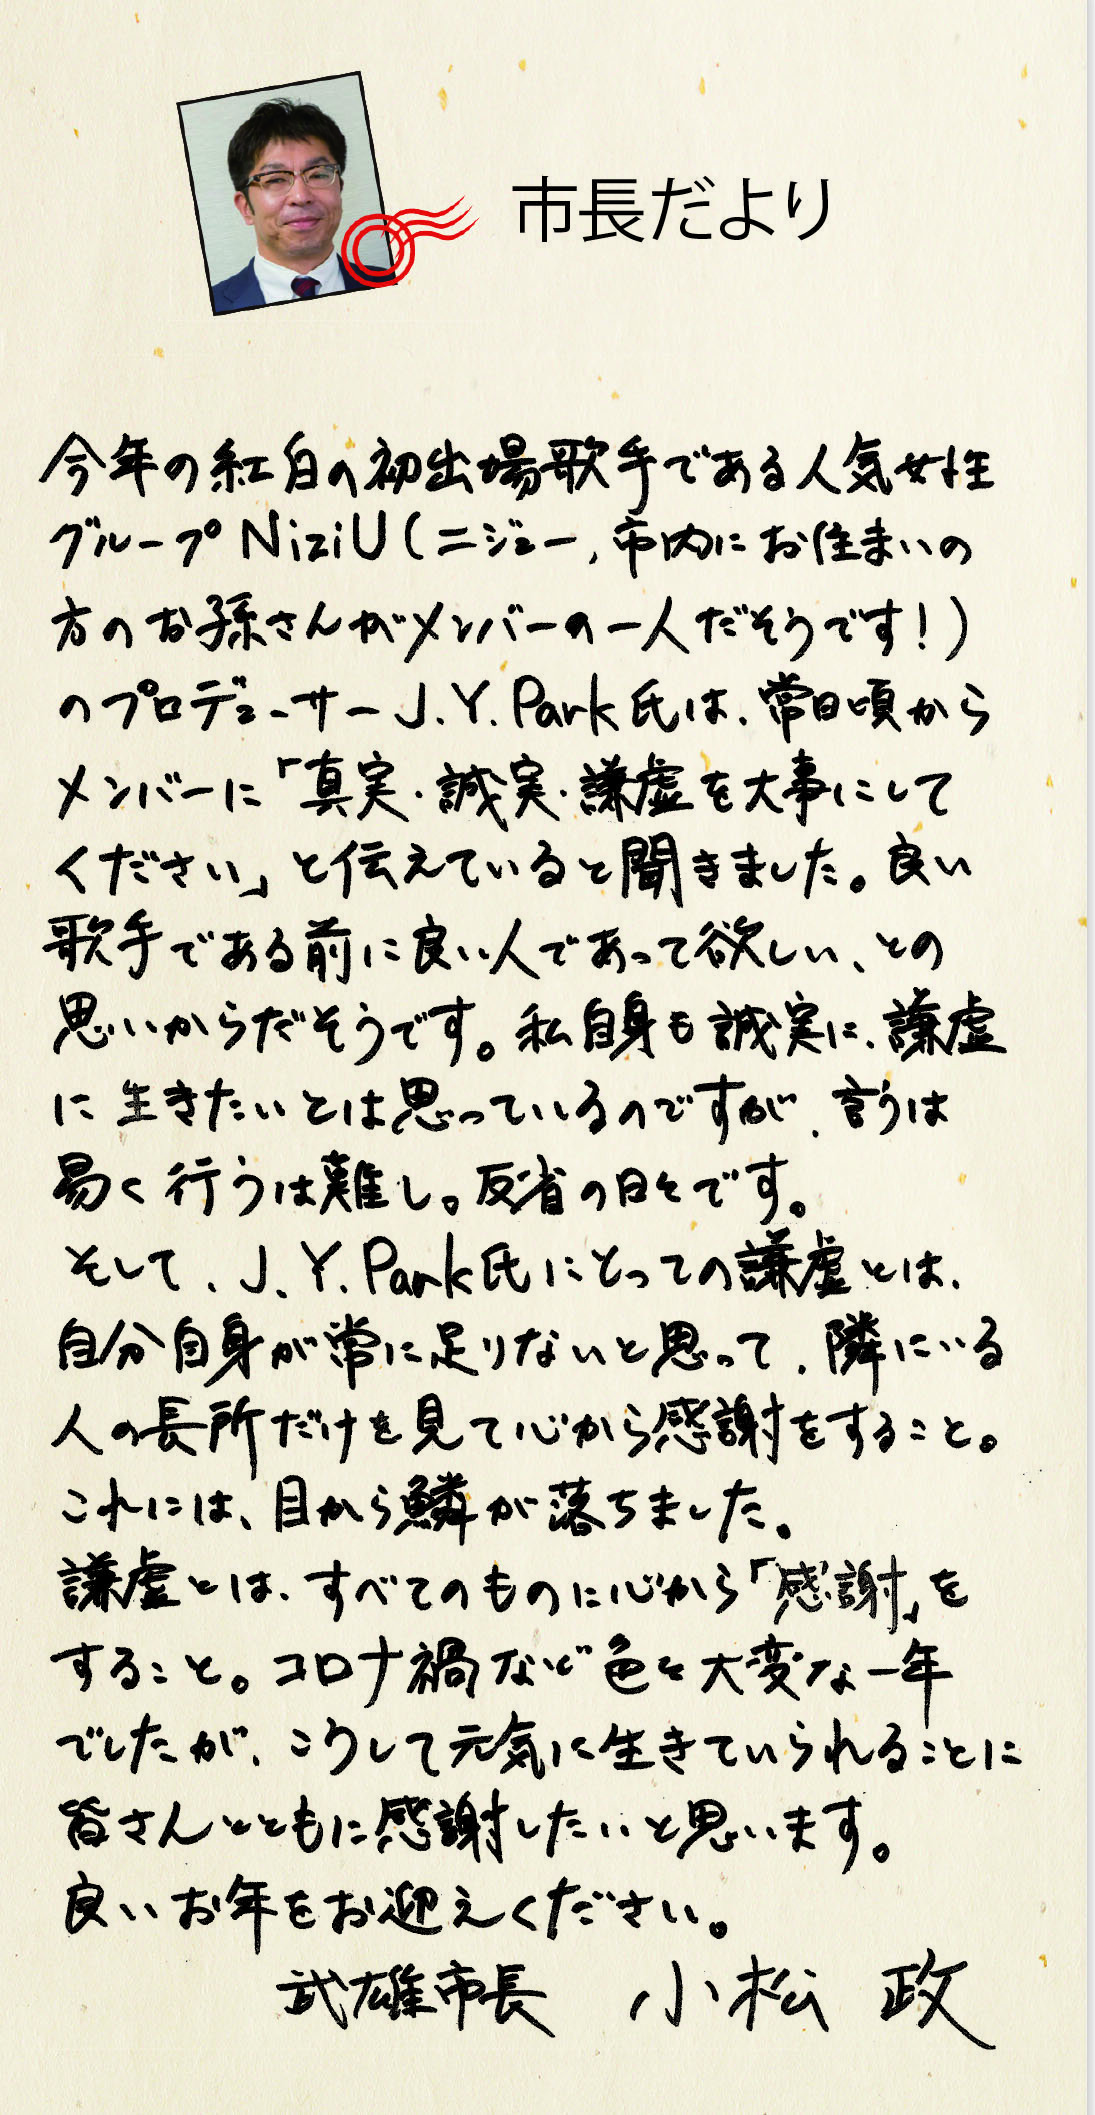 市長だより
今年の紅白の初出場歌手である人気女性
グループNiziU(ニジュー,市内にお住まいの
方のお孫さんがメンバーの一人だそうです!)
のプロデューサーJ.Y.Park氏は、常日頃から
メンバーに「真実・誠実・謙虚を大事にして
ください」と伝えていると聞きました。良い
歌手である前に良い人であって欲しい、との
思いからだそうです。私自身も誠実に、謙虚
に生きたいとは思っているのですが、言うは
易く行うは難し。反省の日々です。
そして、J.Y.Park氏にとっての謙虚とは、
自分自身が常に足りないと思って、隣にいる
人の長所だけを見て心から感謝をすること。
これには、目から鱗が落ちました。
謙虚とは、すべてのものに心から「感謝」を
すること。コロナ禍など色々大変な一年
でしたが、こうして元気に生きていられることに
皆さんとともに感謝したいと思います。
良いお年をお迎えください。
武雄市長 小松 政